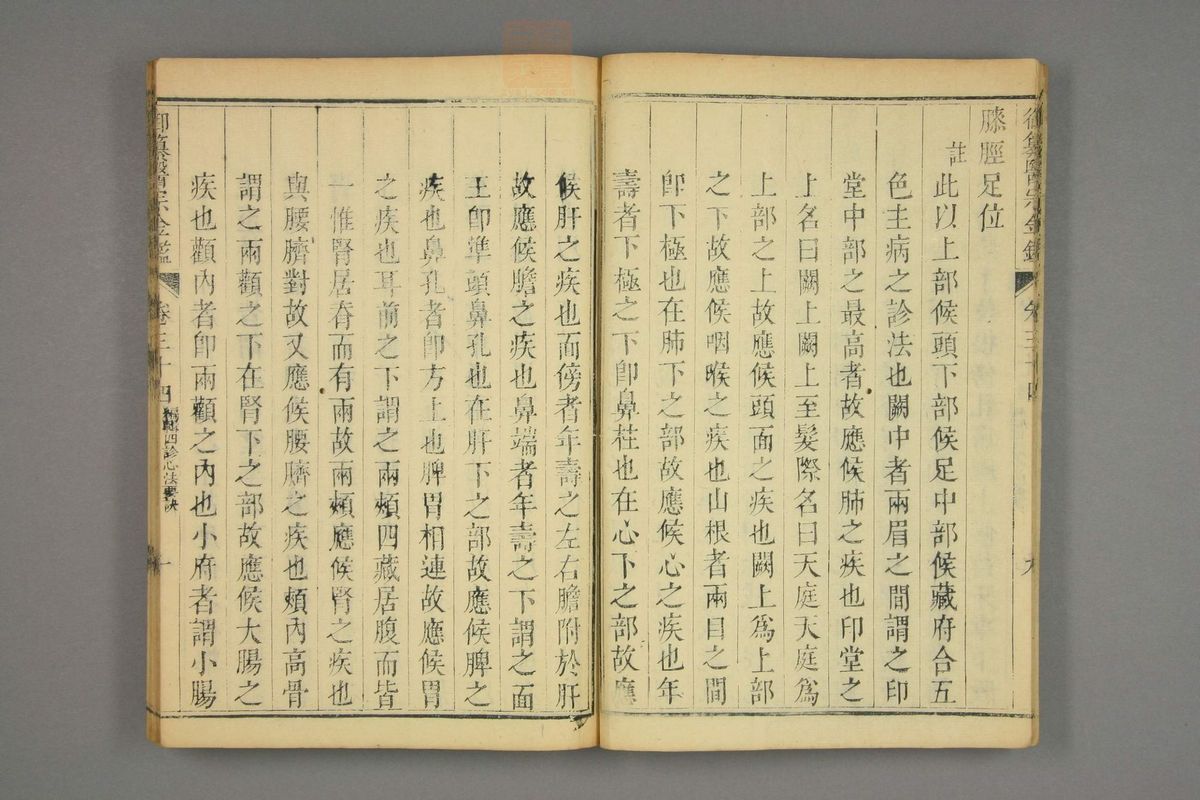 御纂醫宗金鑑 卷三十四
膝脛足位
註
此以上部候頭下部候足中部候藏府合五
色主病之診法也闕中者兩眉之間謂之印
堂中部之最高者故應候肺之疾也印堂之
上名曰闕上闕上至髮際名曰天庭天庭爲
上部之上故應候頭面之疾也闕上爲上部
之下故應候咽喉之疾也山根者兩目之間
卽下極也在肺下之部故應候心之疾也年
壽者下極之下卽鼻柱也在心下之部故應
候肝之疾也面傍者年壽之左右膽附於肝
故應候膽之疾也鼻端者年壽之下謂之面
王卽準頭鼻孔也在肝下之部故應候脾之
疾也鼻孔者卽方上也脾胃相連故應候胃
之疾也耳前之下謂之兩頰四藏居腹而皆
一惟腎居脊而有兩故兩頰應候腎之疾也
與腰臍對故又應候腰臍之疾也頰內高骨
謂之兩顴之下在腎下之部故應候大腸之
疾也顴內者卽兩顴之內也小府者謂小腸
御纂醫宗金鑑 卷三十四 編輯四診心法要訣